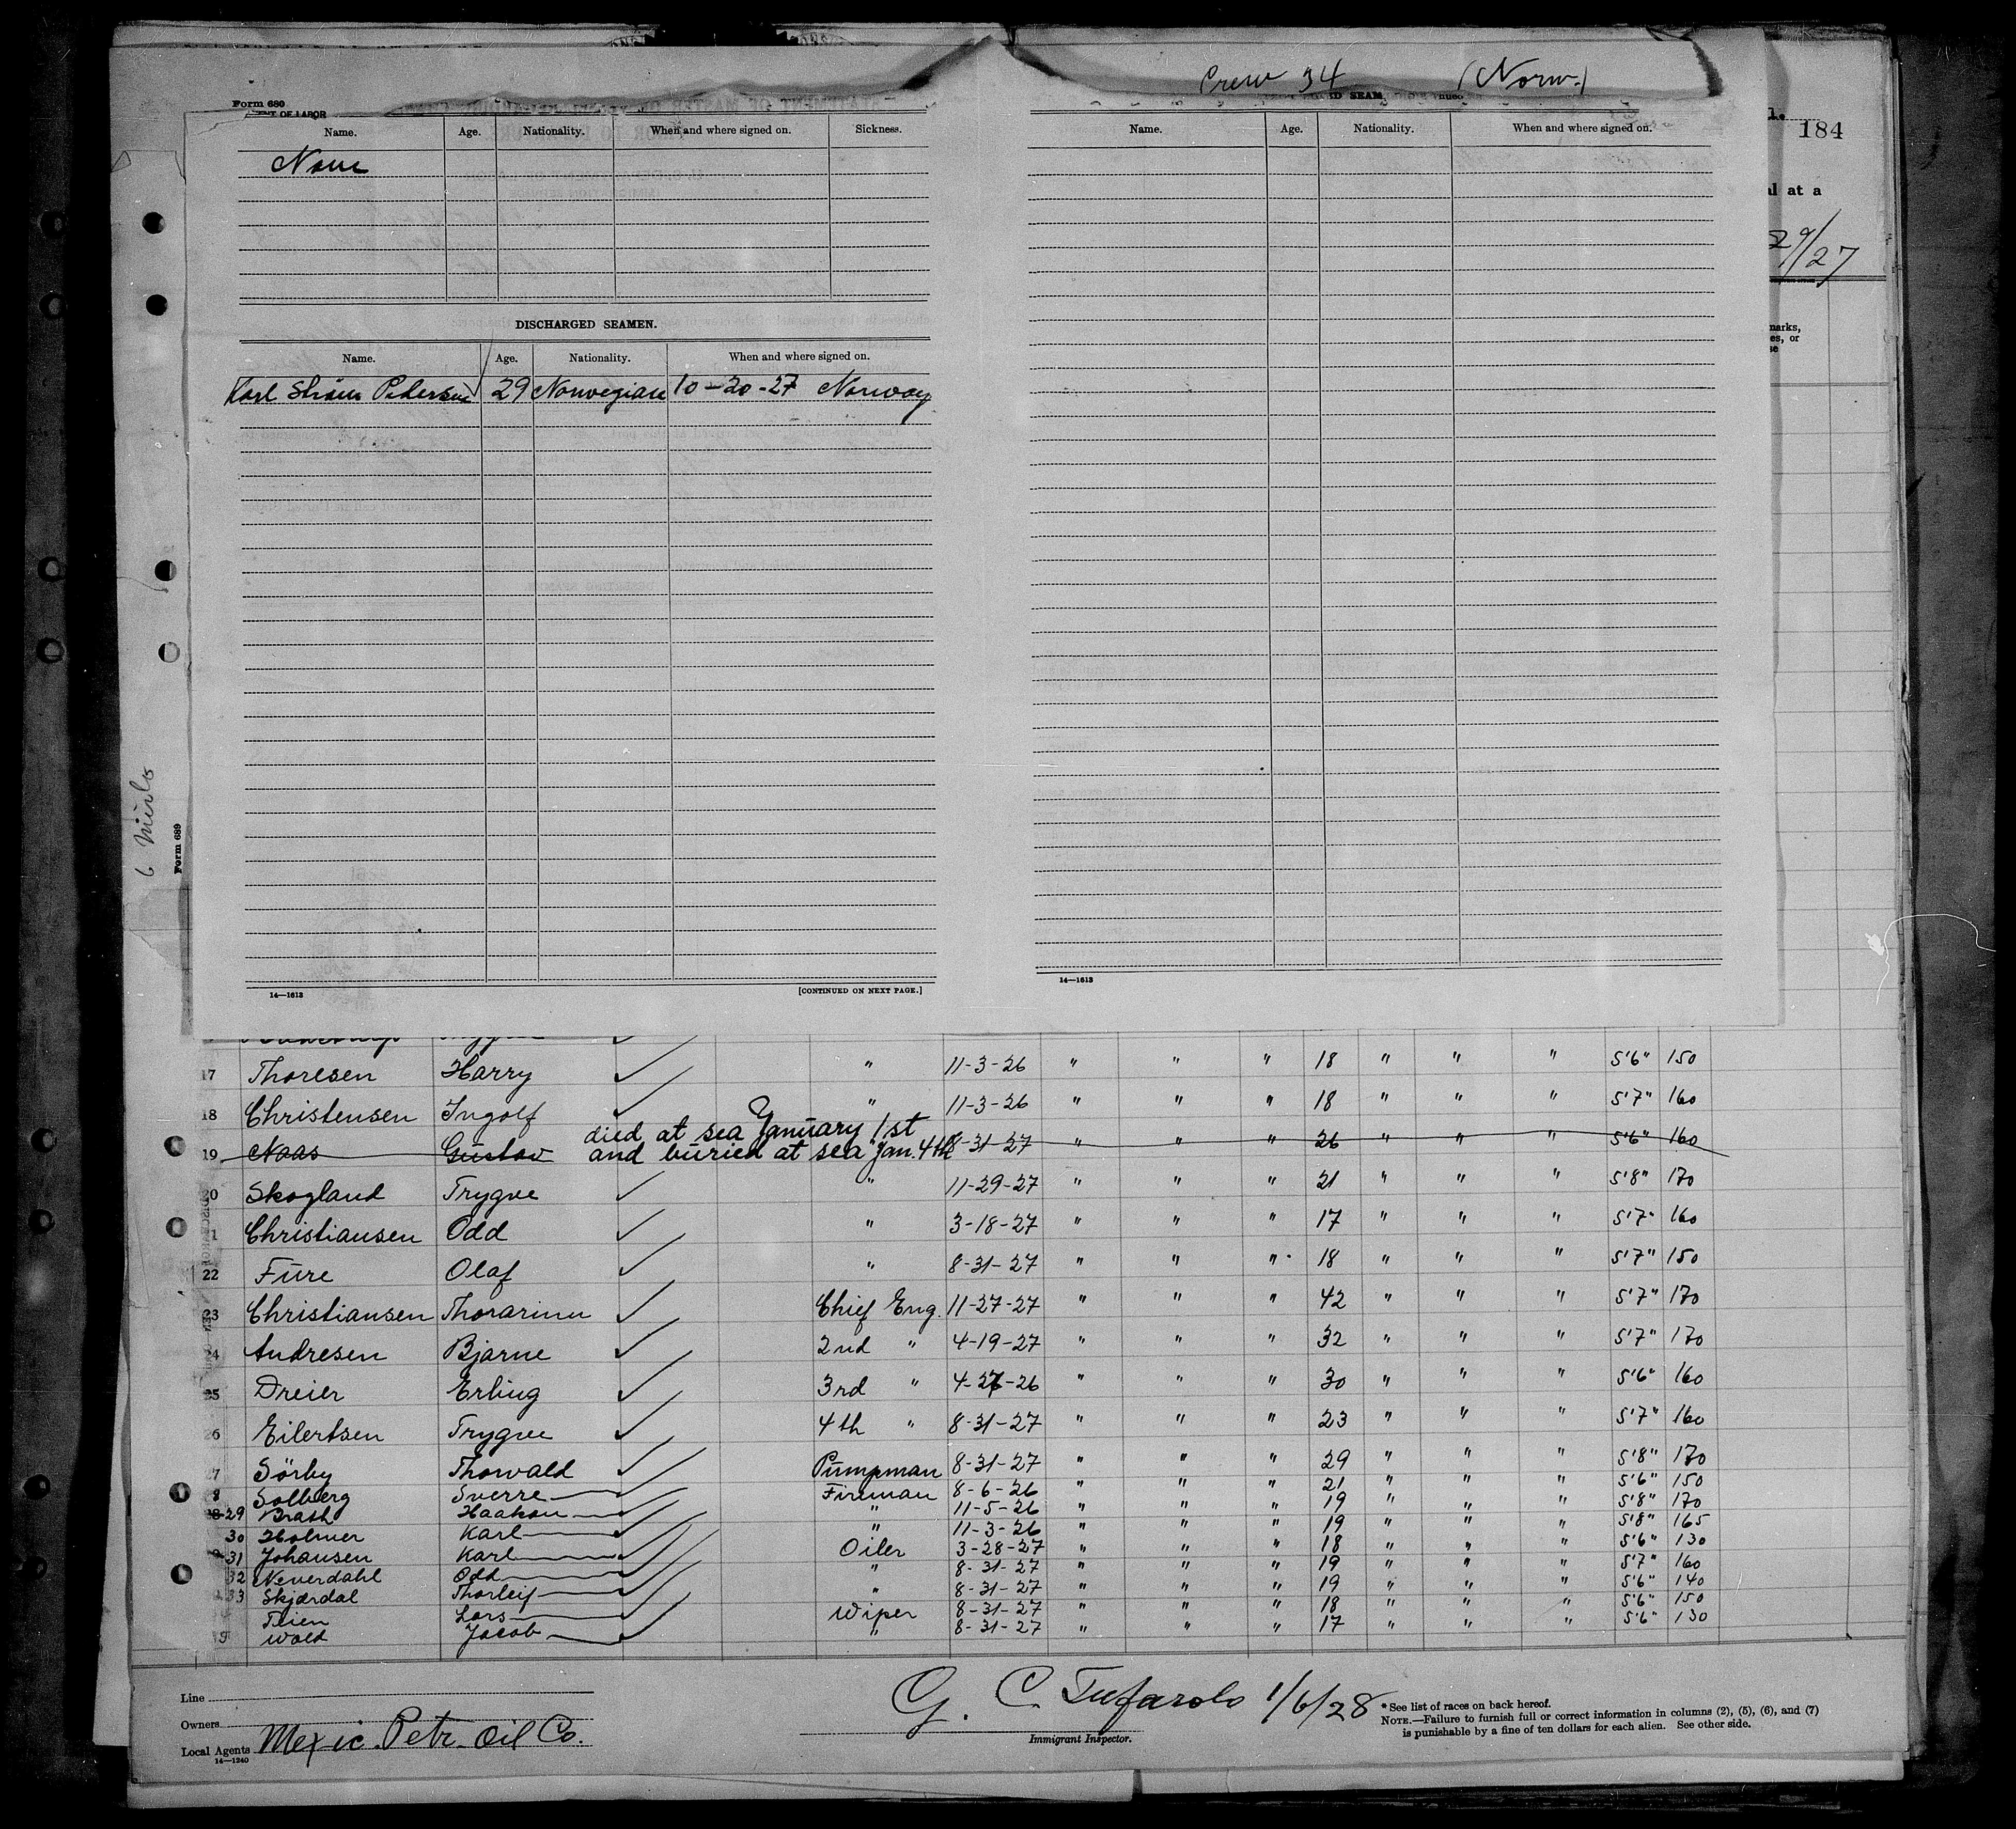 Crew 34 (Norw.)
Form 680
NT OF LABOR
Name. Age. Nationality. When and where signed on. Sickness.
None
DISCHARGED SEAMEN.
Name. Age. Nationality. When and where signed on.
Karl Pedersen 29 Norwegian 10-20-27 Norway
14—1613
[CONTINUED ON NEXT PAGE.]
Name. Age. Nationality. When and where signed on.
14—1613
184
al at a
29/27
marks,
es, or
se
Form 689
17 Thoresen Harry " 11-3-26 " " " 18 " " " 5'6" 150
18 Christensen Ingolf " 11-3-26 " " " 18 " " " 5'7" 160
died at sea January 1st
19 Naas Gustav and buried at sea Jan. 4th 8-31-27 " " " 26 " " " 5'6" 160
20 Skogland Trygve " 11-29-27 " " " 21 " " " 5'8" 170
1 Christiansen Odd " 3-18-27 " " " 17 " " " 5'7" 160
22 Füre Olaf " 8-31-27 " " " 18 " " " 5'7" 150
23 Christiansen Thorarinn Chief Eng. 11-27-27 " " " 42 " " " 5'7" 170
24 Andresen Bjarne 2nd " 4-19-27 " " " 32 " " " 5'7" 170
25 Dreier Erling 3rd " 4-26-26 " " " 30 " " " 5'6" 160
26 Eilertsen Trygve 4th " 8-31-27 " " " 23 " " " 5'7" 160
27 Sörby Thorvald Pumpman 8-31-27 " " " 29 " " " 5'8" 170
8 Solberg Sverre Fireman 8-6-26 " " " 21 " " " 5'6" 150
29 Brath Haakon " 11-5-26 " " " 19 " " " 5'8" 170
30 Holmer Karl " 11-3-26 " " " 19 " " " 5'8" 165
31 Johansen Karl Oiler 3-28-27 " " " 18 " " " 5'6" 130
32 Neverdahl Odd " 8-31-27 " " " 19 " " " 5'7" 160
33 Skjærdal Thorleif " 8-31-27 " " " 19 " " " 5'6" 140
Teien Lars Wiper 8-31-27 " " " 18 " " " 5'6" 150
Wold Jacob " 8-31-27 " " " 17 " " " 5'6" 130
Line
Owners
Local Agents Mexic. Petr. Oil Co.
14—1240
G. C. Tufarolo 1/6/28
Immigrant Inspector.
* See list of races on back hereof.
NOTE.—Failure to furnish full or correct information in columns (2), (5), (6), and (7)
is punishable by a fine of ten dollars for each alien. See other side.